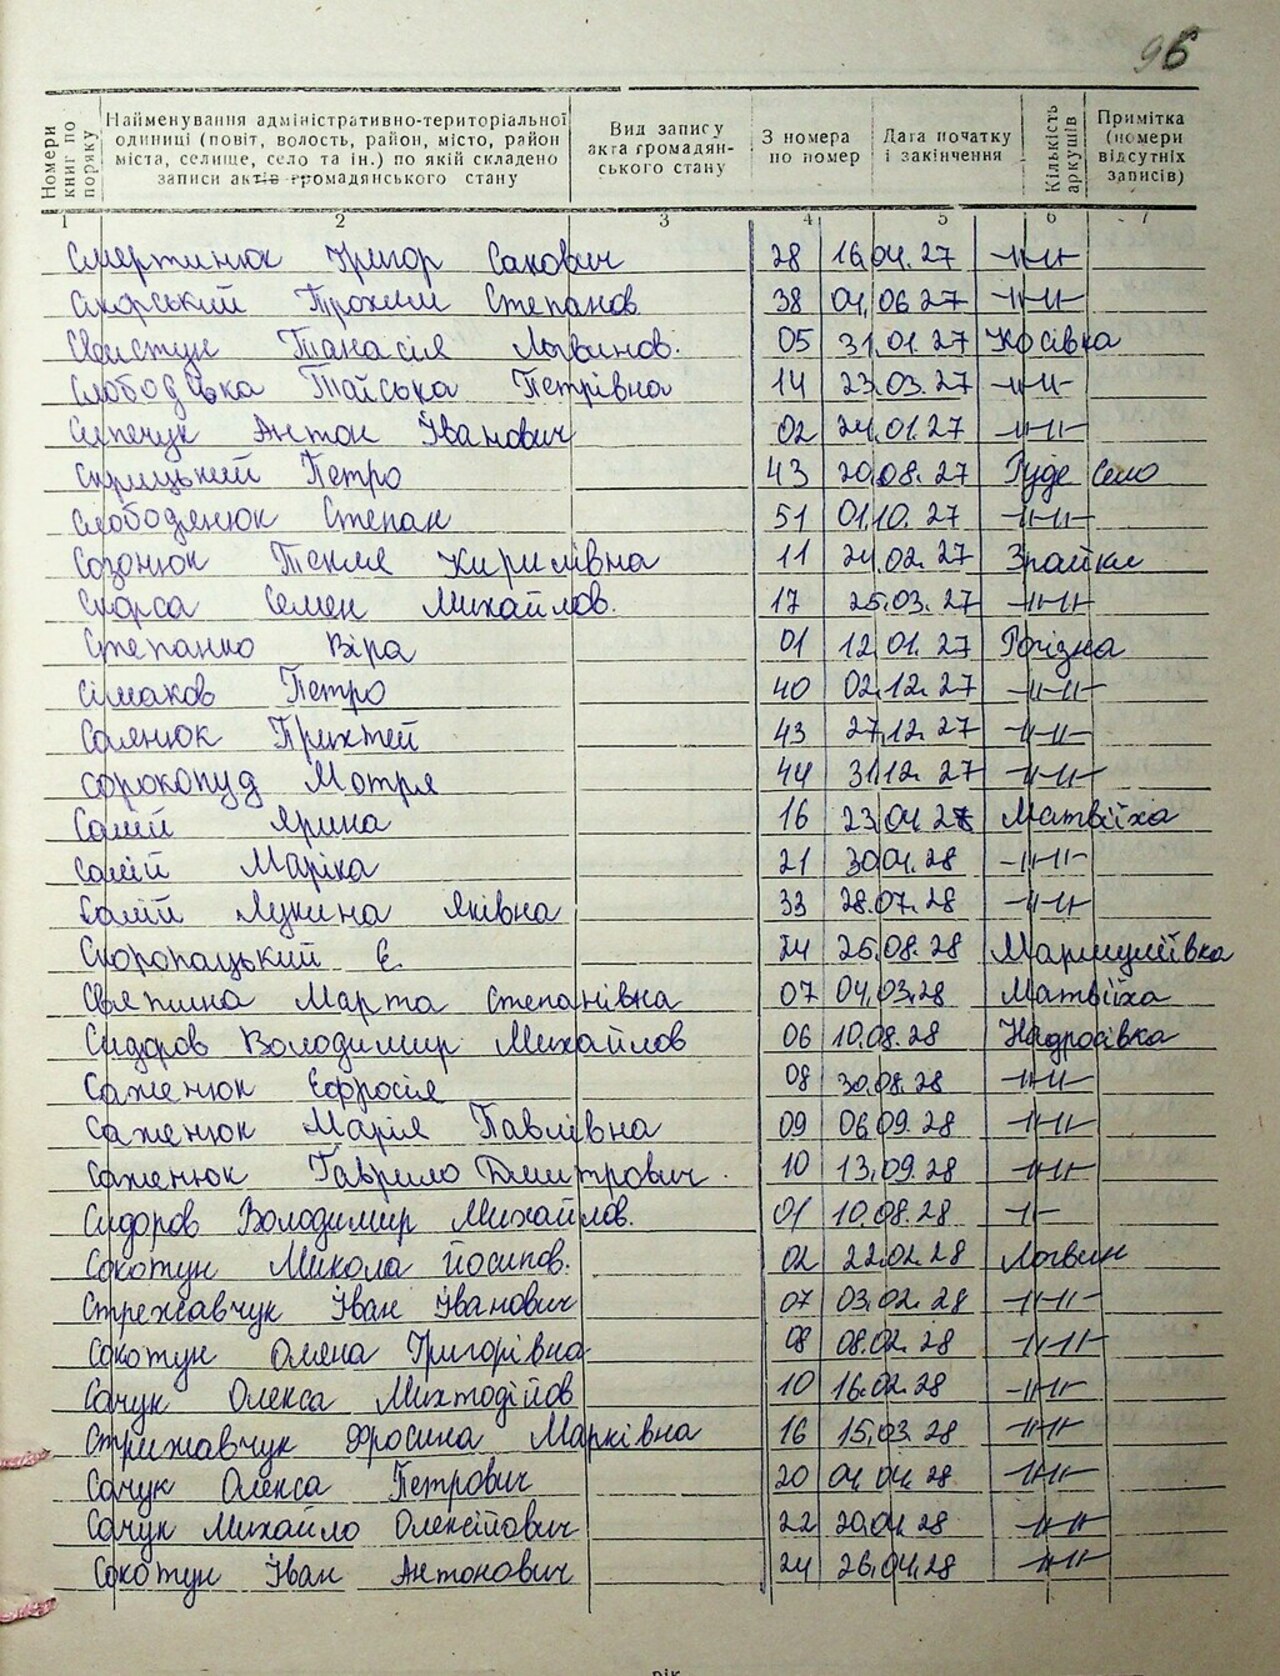 96
Номери книг по поряку
Найменування адміністративно-територіальної одиниці (повіт, волость, район, місто, район міста, селище, село та ін.) по якій складено записи актів громадянського стану
Вид запису акта громадян-ського стану
З номера по номер
Дата початку і закінчення
Кількість аркушів
Примітка (номери відсутніх записів)
1 2 3 4 5 6 7
Смертинюк Григор Сакович 28 16.04.27 -//-//-
Сікорський Трохим Степанов. 38 04.06 27 -//-//-
Свистун Танасія Логвинов. 05 31.01.27 Косівка
Слободська Тайська Петрівна 14 23.03.27 -//-//-
Сипечук Антон Іванович 02 24.01.27 -//-//-
Скрицький Петро 43 20.08.27 Руде Село
Слободенюк Степан 51 01.10.27 -//-//-
Созонюк Текля Кирилівна 11 24.02.27 Зрайки
Скорса Семен Михайлов. 17 25.03.27 -//-//-
Степанко Віра 01 12.01.27 Рогізна
Сімаков Петро 40 02.12.27 -//-//-
Саленюк Прихтей 43 27.12.27 -//-//-
Сорокопуд Мотря 44 31.12.27 -//-//-
Салій Ярина 16 23.04 28 Матвіїха
Салій Маріка 21 30.04.28 -//-//-
Салій Лукина Яківна 33 28.07.28 -//-//-
Скоропацький Є. 24 26.08.28
Святина Марта Степанівна 07 04.03.28 Матвіїха
Сидоров Володимир Михайлов 06 10.08.28 Надросівка
Саженюк Ефросія 08 30.08.28 -//-//-
Саженюк Марія Павлівна 09 06.09.28 -//-//-
Саженюк Гаврило Дмитрович. 10 13.09.28 -//-//-
Сидоров Володимир Михайлов. 01 10.08.28 -//-
Сокотун Микола Йосипов. 02 22.02.28 Логвин
Стрежавчук Іван Іванович 07 03.02.28 -//-//-
Сокотун Олена Григорівна 08 08.02.28 -//-//-
Сачук Олекса Михтодійов 10 16.02.28 -//-//-
Стрижавчук Фросина Марківна 16 15.03.28 -//-//-
Сачук Олекса Петрович 20 04.04.28 -//-//-
Сачук Михайло Олексійович 22 20.04.28 -//-//-
Сокотун Іван Антонович 24 26.04.28 -//-//-
рік